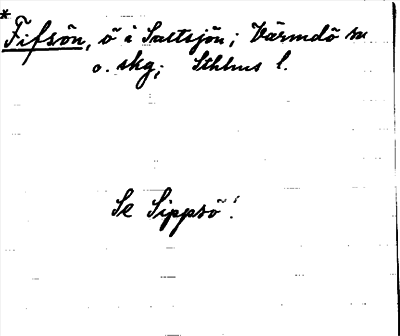 *
Fifsön, ö i Saltsjön; Värmdö sn
o. skg; Sthlms l.
Se Sippsö!